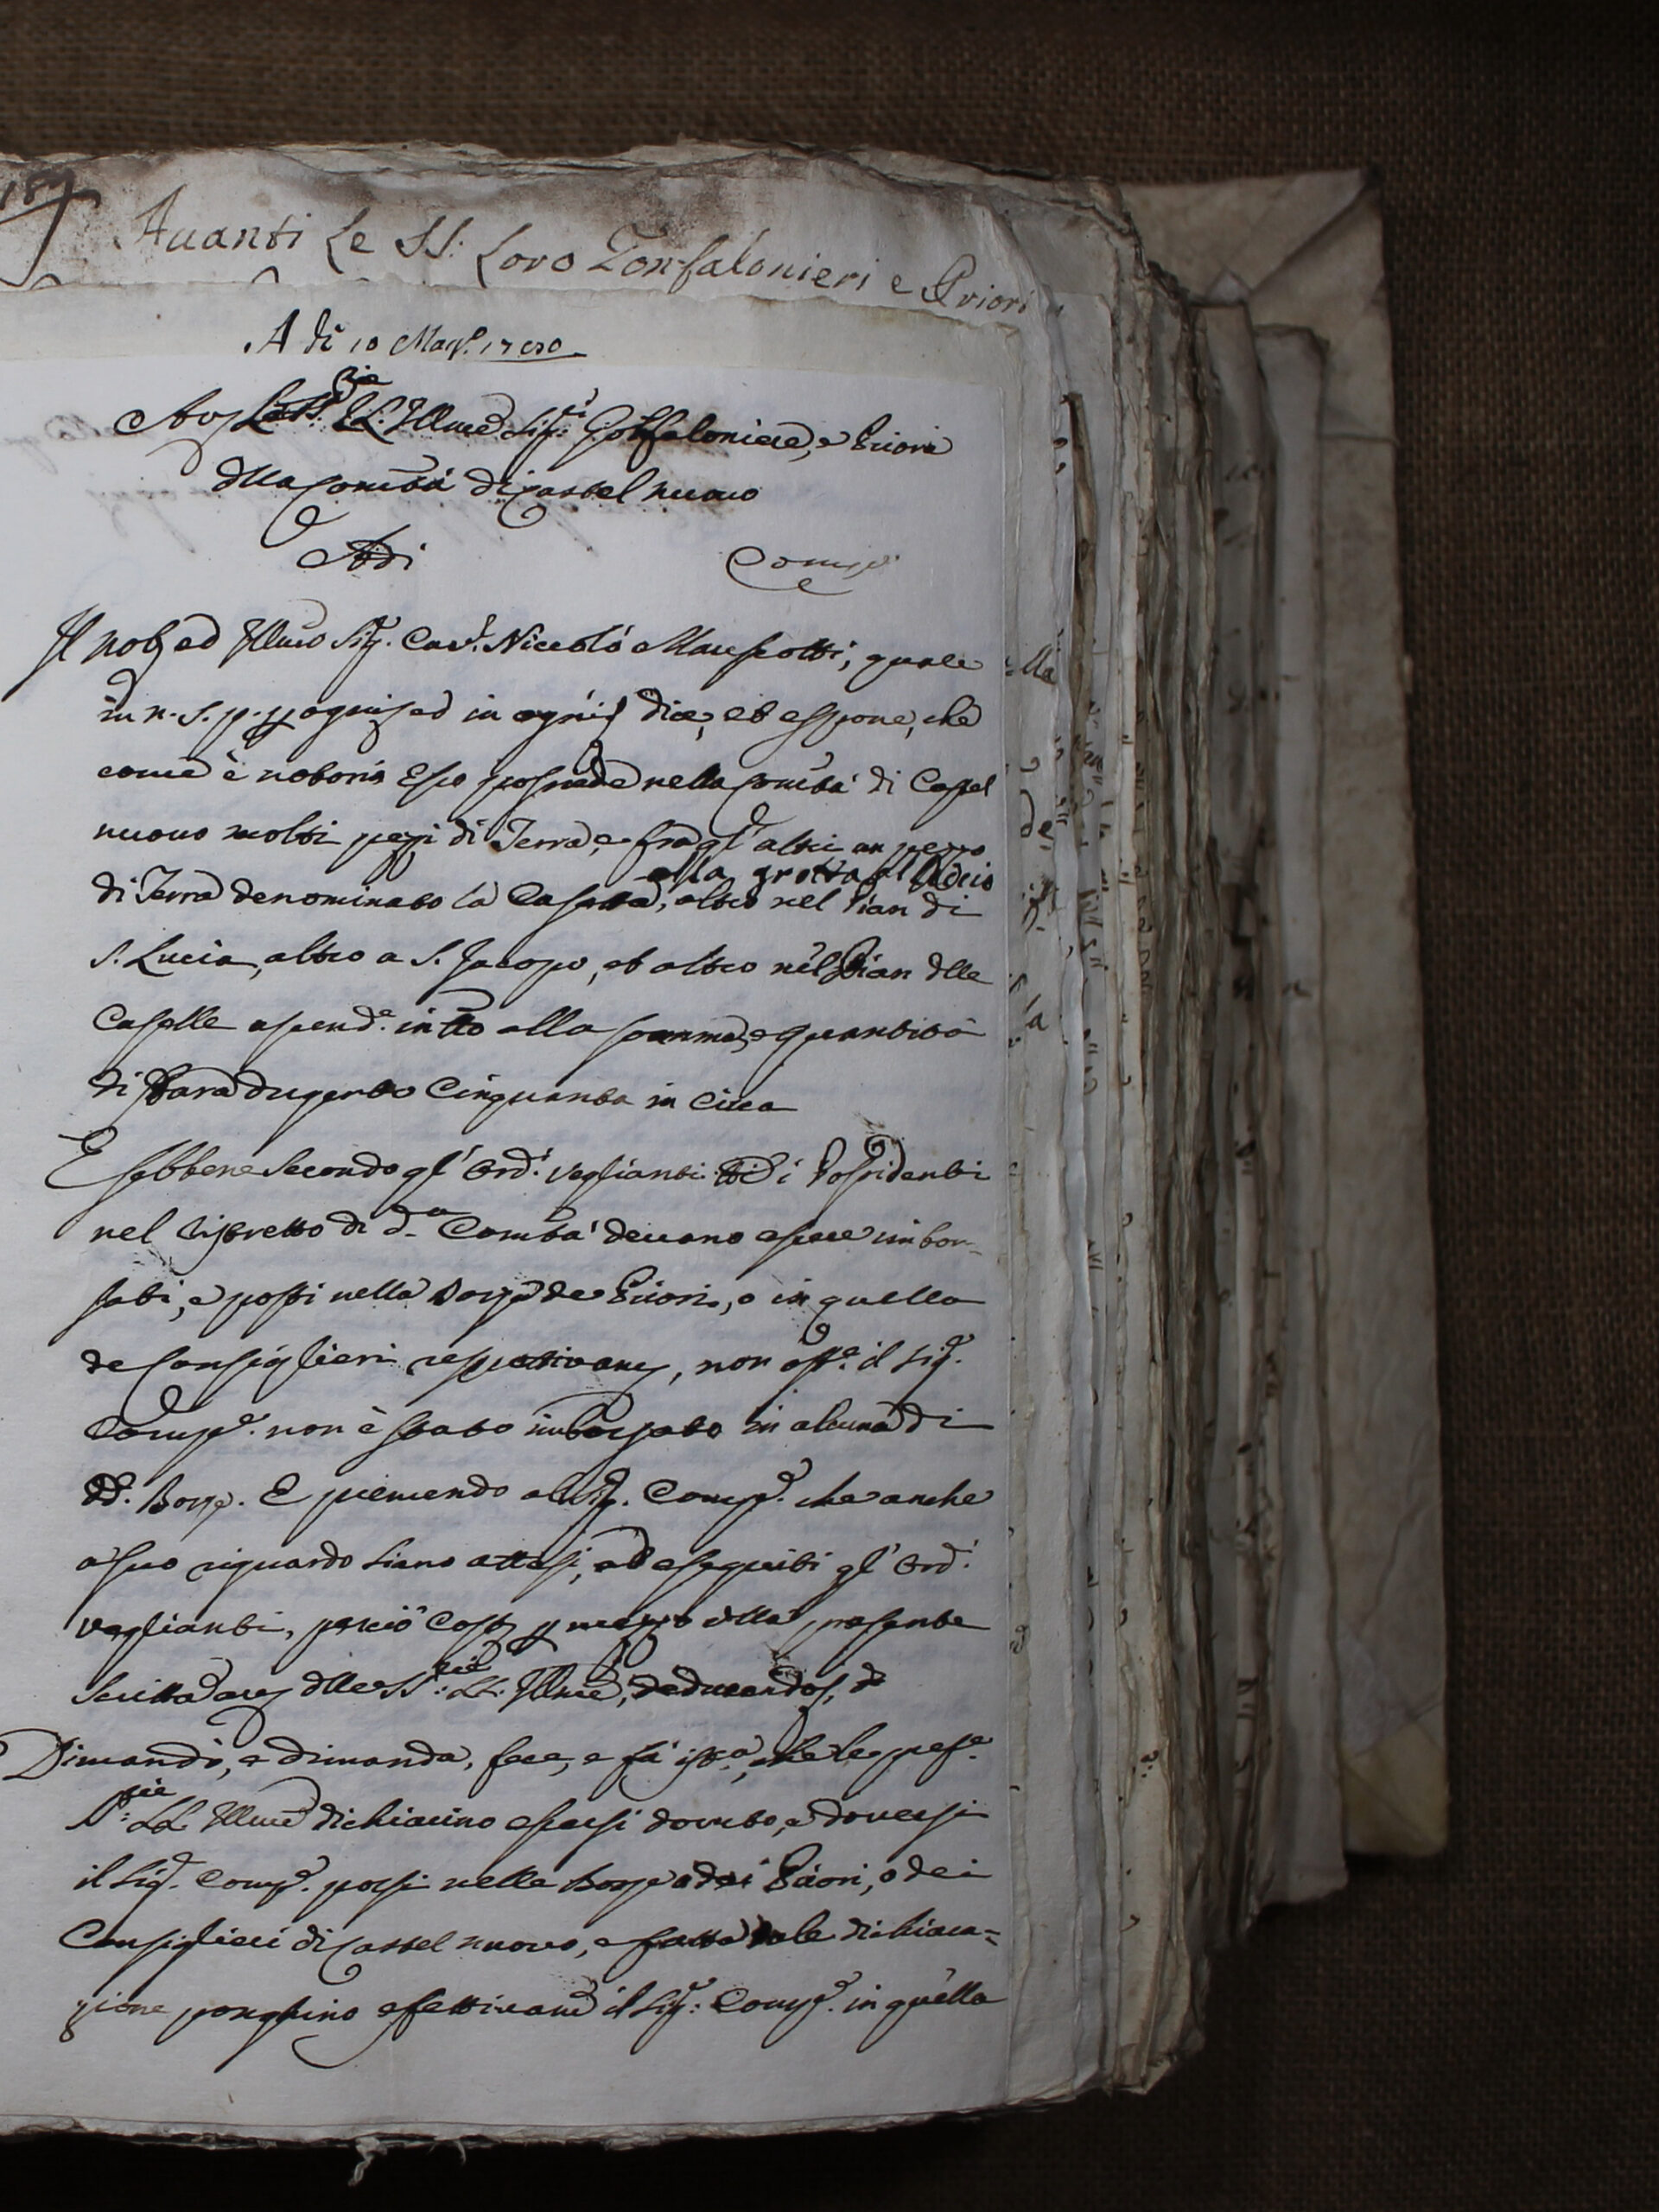 187
Auanti Le SS: Loro Gonfalonieri e Priori
A di 10 Mag.
Au. Le SS.rie LL: Illme Sig.ri Gonfaloniere, e Priori
dlla Comtà di Castel nuouo
Adi
Comp.
Il nob. ed Illmo Sig. Cav. Niccolò Mariscotti, quale
in n. s. p. p ogni ed in ogni dice, et espone, che
come è notorio Esso possiede nella Comtà di Castel
nuouo molti pezzi di Terra, e fra gl'altri un pezzo
alla grotta
di Terra denominato la Casetta, altro nel Pian di
S. Lucia, altro a S. Jacopo, et altro nel Pian dlle
Caselle ascend.e in tto alla somma, e quantità
di Stara dugento Cinquanta in Circa
E sebbene Secondo gl' Ord.i veglianti tti i Possidenti
nel Distretto di d.a Comtà deuano essere imbor-
sati, e posti nella Borsa de Priori, o in quella
de Consiglieri respettivam, non ost.e il Sig.
Comp.e non è stato imborsato in alcuna di
dd. Borse. E premendo al Sig. Comp.e che anche
a suo riguardo siano attesi, ed eseguiti gl' Ord.i
veglianti, perciò Cost p mezzo dlla presente
Scritta au. dlle SS.rie LL. Illme, deducendo,
Dimandò, e dimanda, fece, e fà ist.a, che le pref.e
S.rie LL Illme dichiarino essersi douuto, e douersi
il Sig. Comp.e porsi nella Borsa dei Priori, o dei
Consiglieri di Castel nuouo, e fatta tale dichiara=
zione ponghino effettivame il Sig: Comp.e in quella